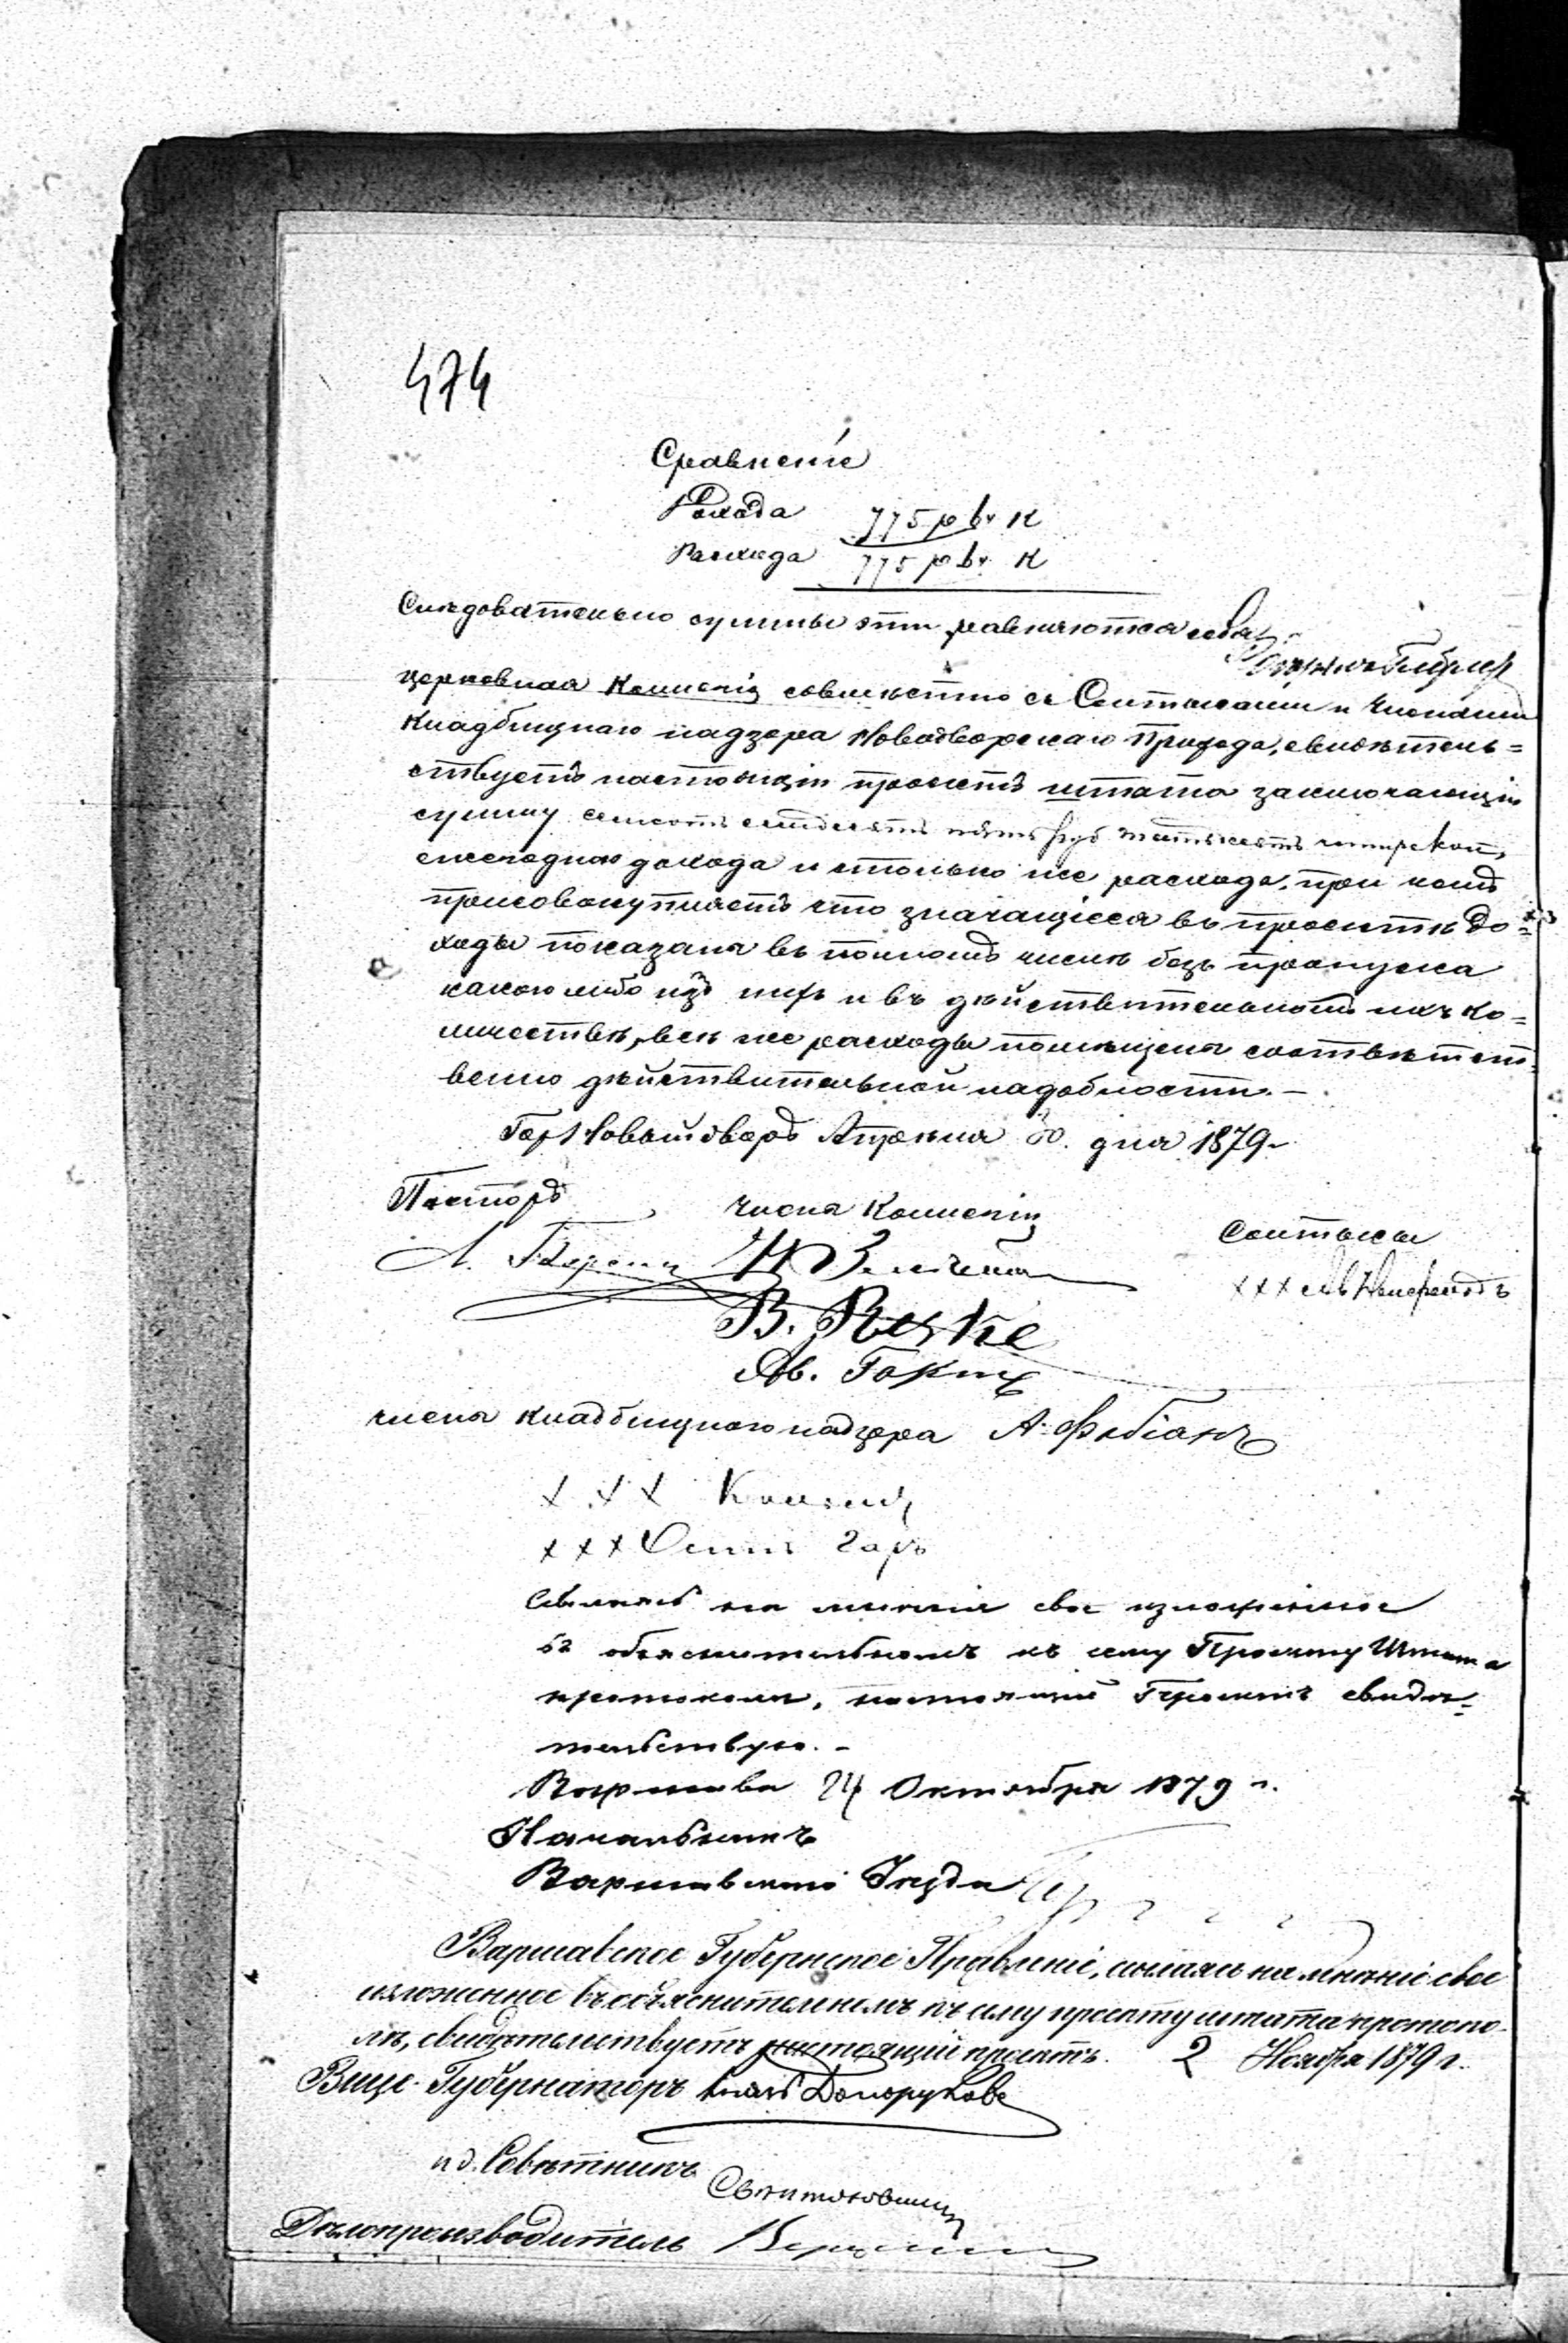 474
Сравненіе
Дохода 775 р 64 к
Расхода 775 р 64 к
Слѣдовательно суммы эти равняются себѣ
церковная Коммисія совмѣстно съ Солтысами и Членами
Кладбищнаго надзора Новодворскаго Прихода, свидѣтель=
ствуетъ настоящій проектъ штата заключающій
сумму семьсотъ семьдесятъ пять руб шестьдесятъ четыре коп,
ежегоднаго дохода и столько же расхода, при чемъ
присовокупляетъ что значащіеся въ проектѣ до=
ходы показаны въ полномъ числѣ безъ пропуска
какого либо изъ нихъ и въ дѣйствительномъ ихъ ко=
личествѣ, всѣ же расходы помѣщены соотвѣтст
венно дѣйствительной надобности.—
Гор Новыйдворъ Апрѣля 30. дня 1879 г
Пасторъ Члены Коммисіи
Солтысы
Л.
xxx
В.
Яв.
члены кладбищнаго надзора А. Фабіанъ
xxx
xxx Осипъ Гаръ
Ссылаясь на мнѣніе свое изложенное
въ объяснительномъ къ сему Проекту Штата
протоколѣ, настоящій Проектъ свидѣ=
тельствую.—
Варшава 24 Октября 1879 г.
Начальникъ
Варшавскаго Уѣзда
Варшавское Губернское Правленіе, ссылаясь на мнѣніе свое
изложенное въ объяснительномъ къ сему проекту штата протоко-
лѣ, свидѣтельствуетъ настоящій проектъ. 2 Ноября 1879 г.
Вице-Губернаторъ Князь Долоруковъ
и д. Совѣтника
Дѣлопроизводитель